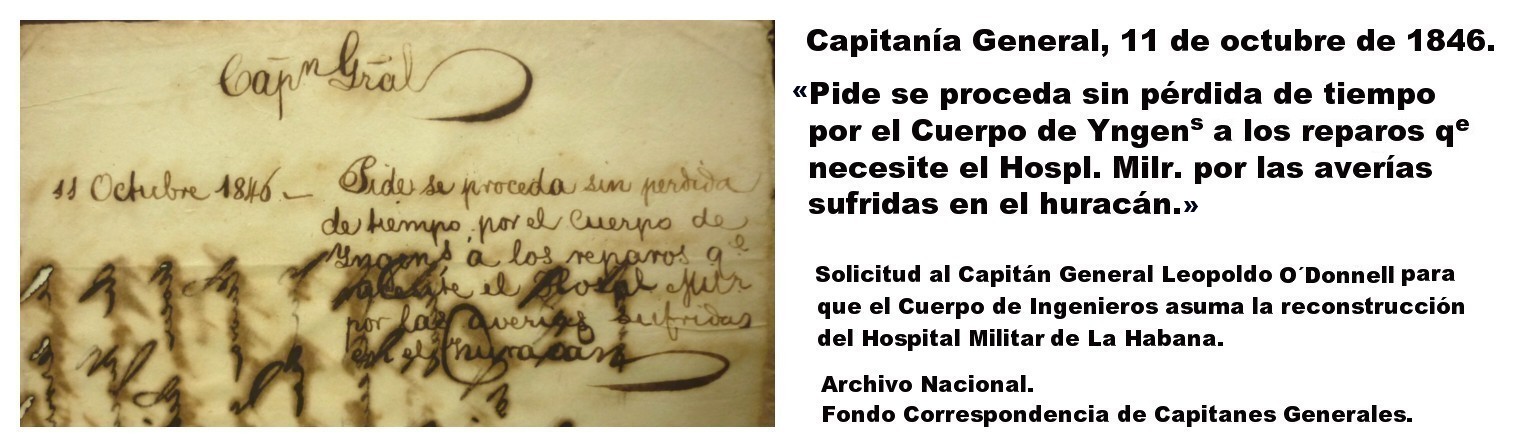 Capn Gral
11 Octubre 1846.— Pide se proceda sin perdida
de tiempo por el Cuerpo de
Yngens á los reparos qe
necesite el Hospl Milr
por las averias sufridas
en el huracán
Capitanía General, 11 de octubre de 1846.
«Pide se proceda sin pérdida de tiempo
por el Cuerpo de Yngens a los reparos qe
necesite el Hospl. Milr. por las averías
sufridas en el huracán.»
Solicitud al Capitán General Leopoldo O´Donnell para
que el Cuerpo de Ingenieros asuma la reconstrucción
del Hospital Militar de La Habana.
Archivo Nacional.
Fondo Correspondencia de Capitanes Generales.